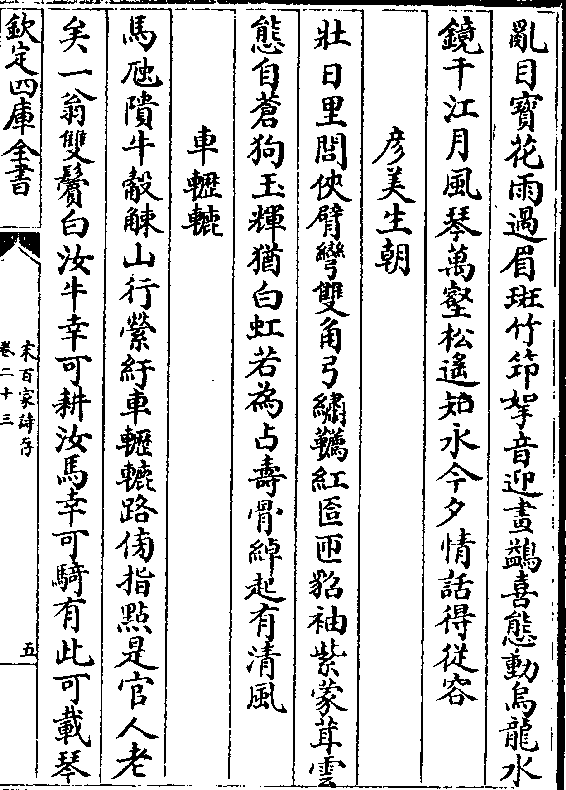 亂目寶花雨過眉斑竹笻挐音迎畫鷁喜態動烏龍水
鏡千江月風琴萬壑松遙知永今夕情話得從容
彦美生朝
壯日里閭俠臂彎雙角弓繡韉紅匼匝貂袖紫蒙茸雲
態自蒼狗玉輝猶白虹若為占壽骨綽起有清風
車轣轆
馬虺隤牛觳觫山行縈紆車轣轆路傍指㸃是官人老
矣一翁雙鬢白汝牛幸可耕汝馬幸可騎有此可載琴
欽定四庫全書
宋百家詩存
卷二十三
五